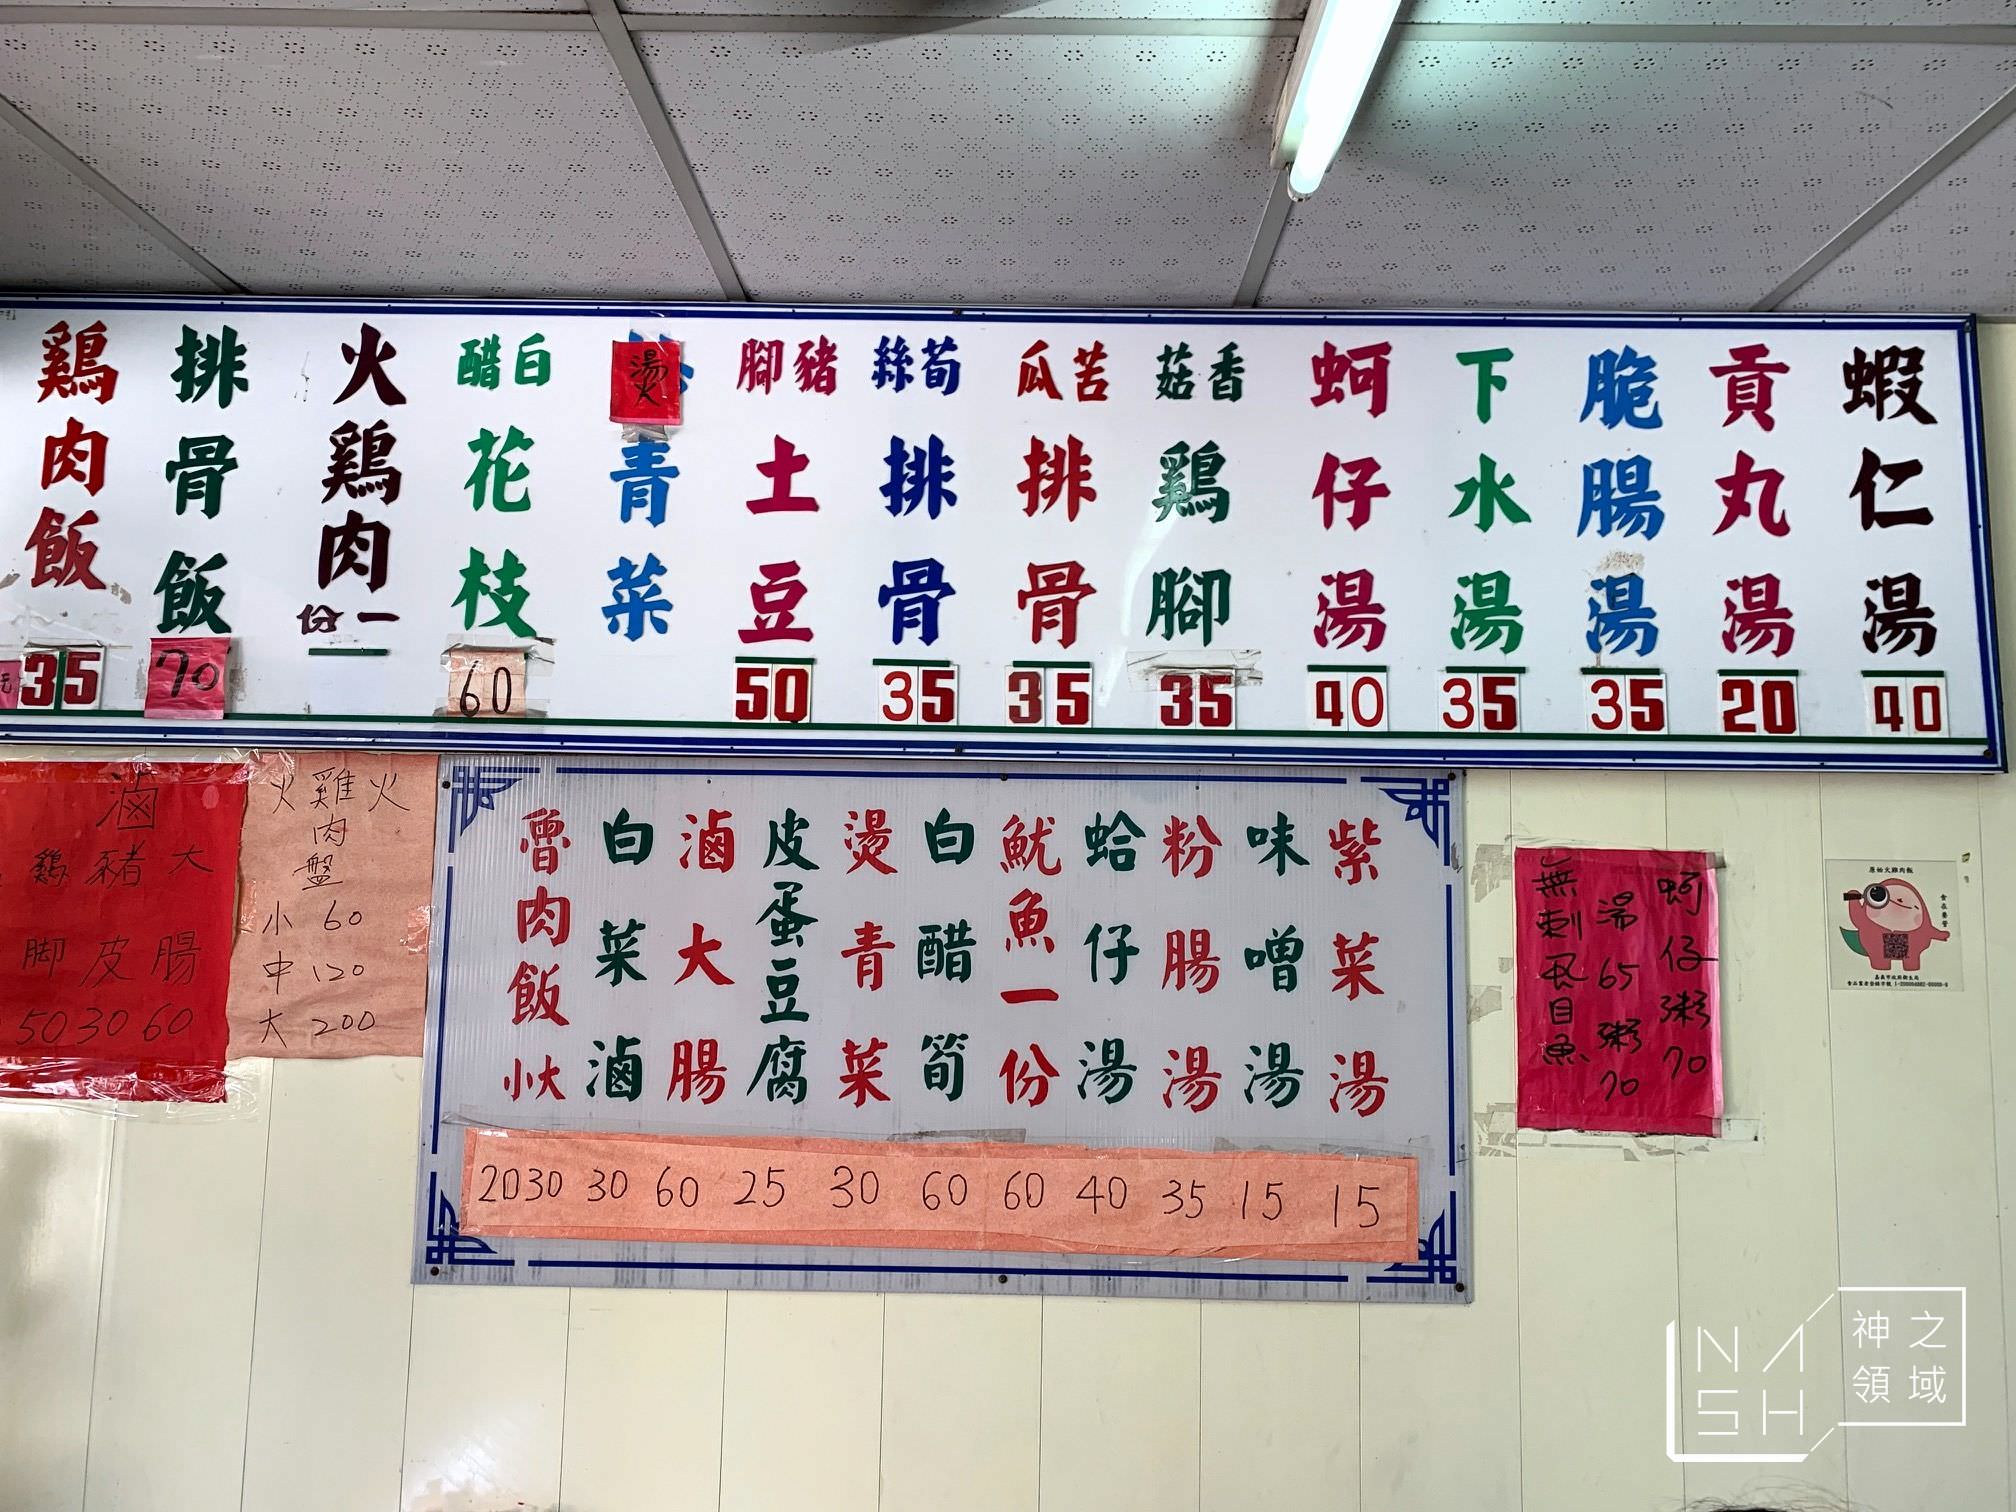 蝦仁湯 40
貢丸湯 20
脆腸湯 35
下水湯 35
蚵仔湯 40
香菇鷄腳 35
苦瓜排骨 35
筍絲排骨 35
豬腳土豆 50
燙青菜
白醋花枝 60
火鷄肉一份
排骨飯 70
鷄肉飯 35
紫菜湯 15
味噌湯 15
粉腸湯 35
蛤仔湯 40
魷魚一份 60
白醋筍 60
燙青菜 30
皮蛋豆腐 25
滷大腸 60
白菜滷 30
魯肉飯 小大 20 30
火雞肉盤
小 60
中 120
大 200
滷
大腸 60
豬皮 30
鷄脚 50
蚵仔粥 70
湯 65 粥 70
無刺虱目魚
原始火雞肉飯
食在香管
嘉義市政府衛生局
NASH
神之領域